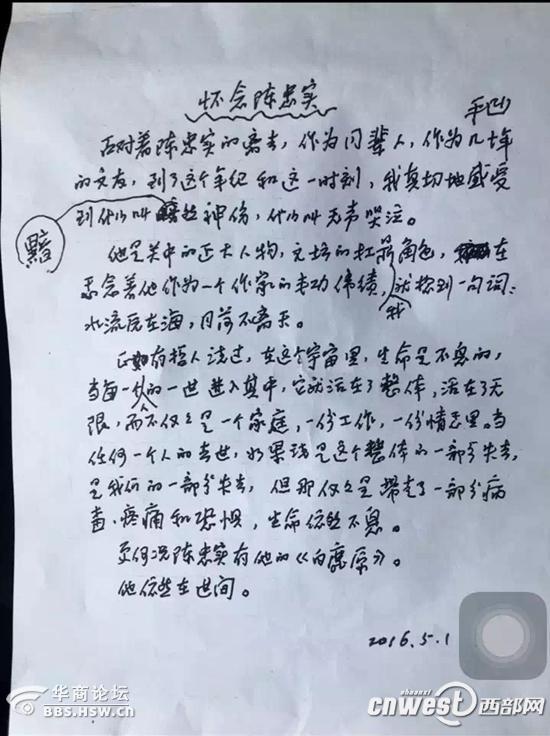 怀念陈忠实
平凹
面对着陈忠实的离去，作为同辈人，作为几十年
的文友，到了这个年纪和这一时刻，我真切地感受
到什么叫黯然神伤，什么叫无声哭泣。
他是关中的正大人物，文坛的扛鼎角色，在
思念着他作为一个作家的丰功伟绩，我想到一句词：
水流原在海，月落不离天。
正如有哲人说过，在这个宇宙里，生命是不息的，
当每一个人的一世进入其中，它就活在了整体，活在了无
限，而不仅仅是一个家庭，一份工作，一份情志里。当
任何一个人的去世，如果说是这个整体的一部分失去，
是我们的一部分失去，但那仅仅是带走了一部分病
毒、疼痛和恐惧，生命依然不息。
更何况陈忠实有他的《白鹿原》。
他依然在世间。
2016.5.1
华商论坛
BBS.HSW.CN
shaanxi
cnwest西部网